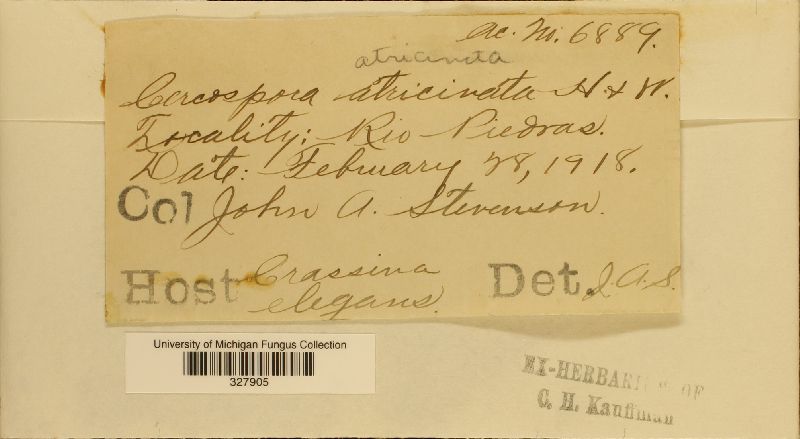 Ac. No. 6889.
atricincta
Cercospora atricincta H & W.
Locality: Rio Piedras.
Date: February 28, 1918.
Col John A. Stevenson.
Host Crassina
elegans.
Det. J. A. S.
University of Michigan Fungus Collection
327905
EX-HERBARIUM OF
C. H. Kauffman